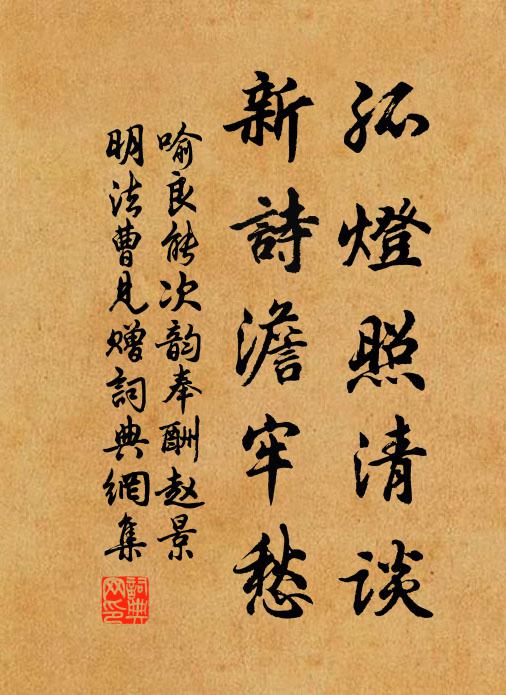 孤燈照清談
新詩澹牢愁
喻良能次韵奉酬赵景
明法曹見赠詞典網集
詞典網印